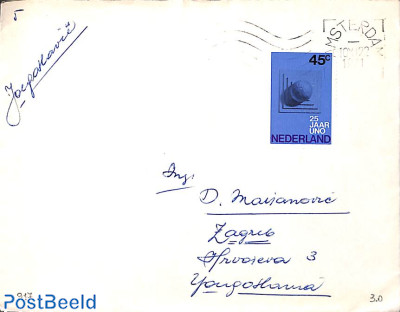 5
Jougoslavië
AMSTERDAM
45c
25
JAAR
UNO
NEDERLAND
Ing.
D. Maijanović
Zagreb
Hrvojeva 3
Yougoslavia
917
3.0
PostBeeld